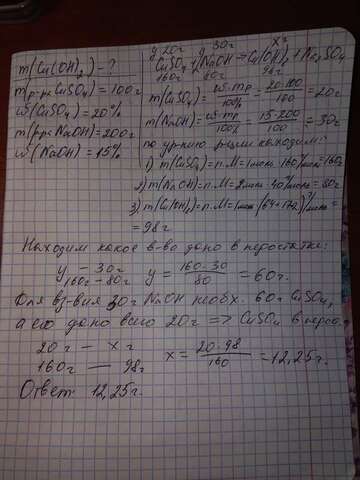 m(Cu(OH)₂) — ?
m(р-ра CuSO₄) = 100г
ω(CuSO₄) = 20%
m(р-ра NaOH) = 200г
ω(NaOH) = 15%
y 20г y 30г x г
CuSO₄ + NaOH → Cu(OH)₂ + Na₂SO₄
160г 80г 98г
m(CuSO₄) = ω·mр / 100% = 20·100 / 100 = 20г
m(NaOH) = ω·mр / 100% = 15·200 / 100 = 30г
по ур-нию р-ции находим:
1) m(CuSO₄) = n·M = 1моль·160г/моль = 160г
2) m(NaOH) = n·M = 2моль·40г/моль = 80г
3) m(Cu(OH)₂) = n·M = 1моль(64+17·2)г/моль =
= 98г
Находим какое в-во дано в недостатке:
y — 30г
160г — 80г y = 160·30 / 80 = 60г.
Для вз-вия 30г NaOH необх. 60г CuSO₄,
а его дано всего 20г => CuSO₄ в
20г — x г
160г — 98г x = 20·98 / 160 = 12,25г.
Ответ: 12,25г.